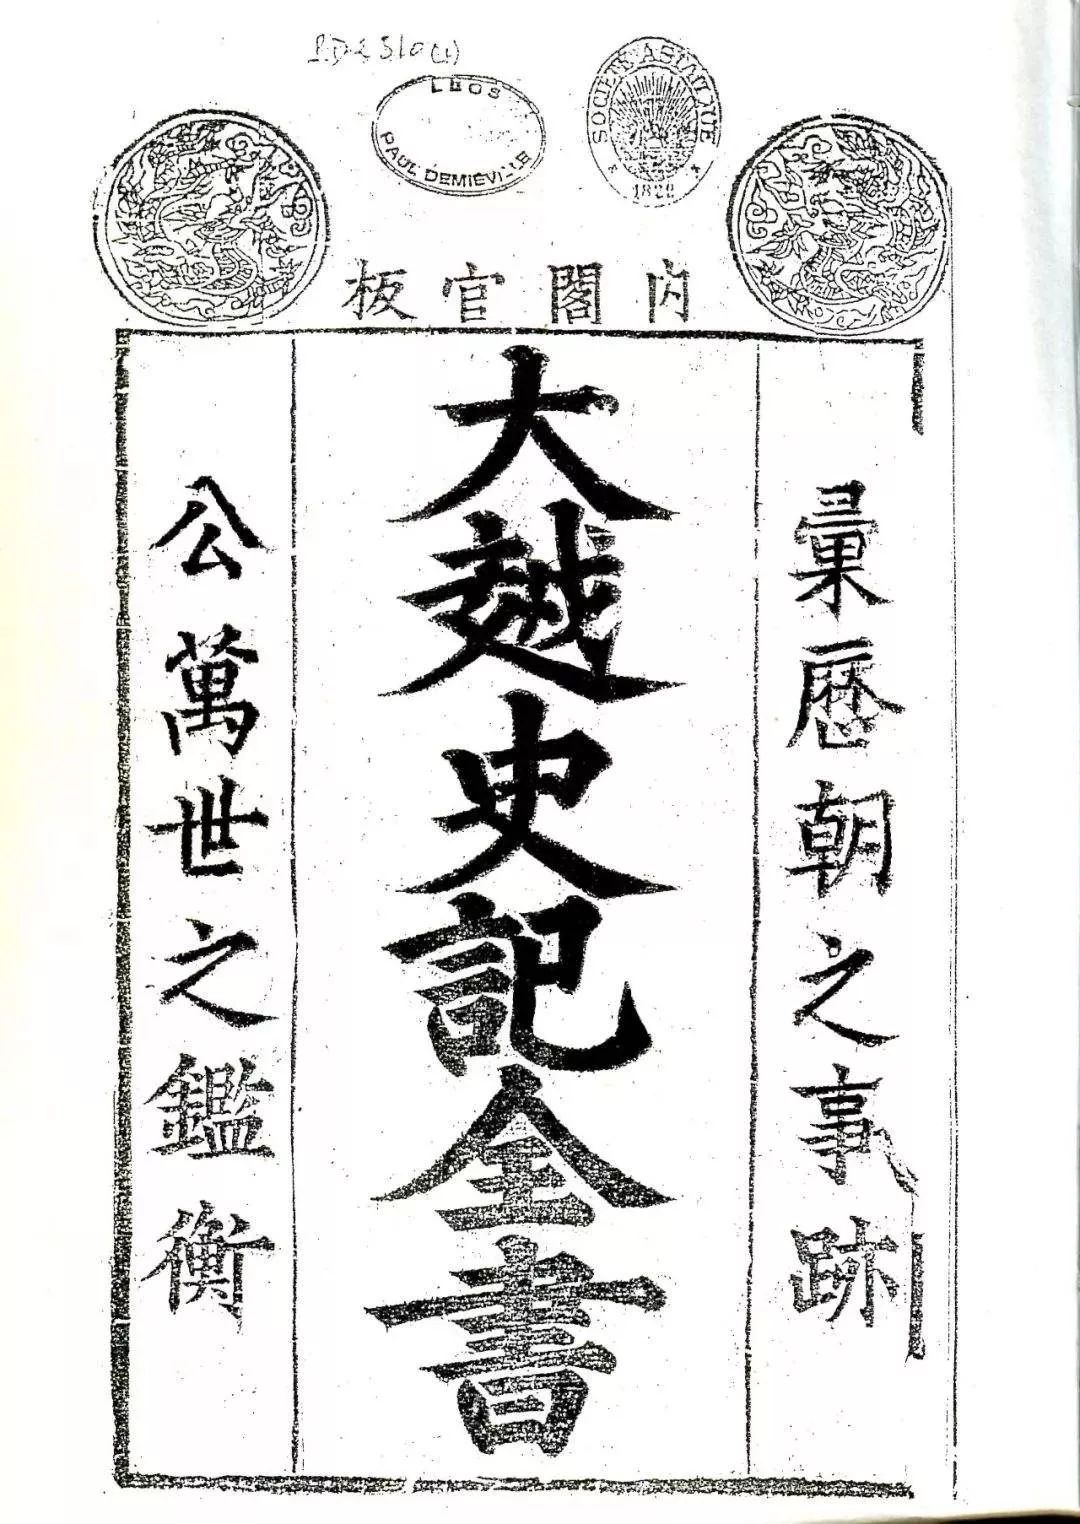 P.D.2310(1)
LEGS
PAUL DEMIÉVILLE
SOCIÉTÉ ASIATIQUE
1822
內閣官板
彙歷朝之事跡
大越史記全書
公萬世之鑑衡